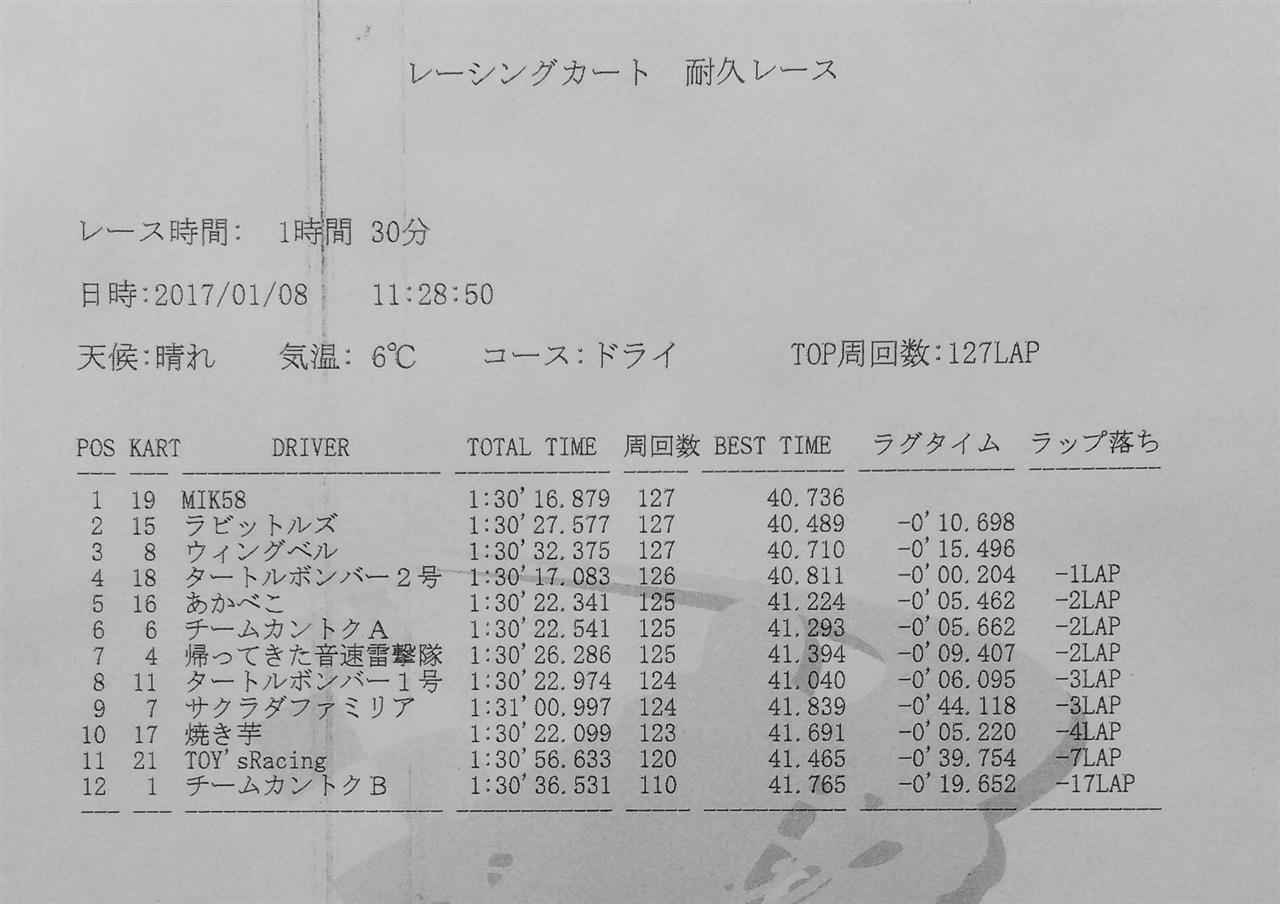 レーシングカート 耐久レース
レース時間: 1時間 30分
日時:2017/01/08 11:28:50
天候:晴れ 気温: 6℃ コース:ドライ TOP周回数:127LAP
POS KART DRIVER TOTAL TIME 周回数 BEST TIME ラグタイム ラップ落ち
1 19 MIK58 1:30'16.879 127 40.736
2 15 ラビットルズ 1:30'27.577 127 40.489 -0'10.698
3 8 ウィングベル 1:30'32.375 127 40.710 -0'15.496
4 18 タートルボンバー２号 1:30'17.083 126 40.811 -0'00.204 -1LAP
5 16 あかべこ 1:30'22.341 125 41.224 -0'05.462 -2LAP
6 6 チームカントクＡ 1:30'22.541 125 41.293 -0'05.662 -2LAP
7 4 帰ってきた音速雷撃隊 1:30'26.286 125 41.394 -0'09.407 -2LAP
8 11 タートルボンバー１号 1:30'22.974 124 41.040 -0'06.095 -3LAP
9 7 サクラダファミリア 1:31'00.997 124 41.839 -0'44.118 -3LAP
10 17 焼き芋 1:30'22.099 123 41.691 -0'05.220 -4LAP
11 21 TOY'sRacing 1:30'56.633 120 41.465 -0'39.754 -7LAP
12 1 チームカントクＢ 1:30'36.531 110 41.765 -0'19.652 -17LAP